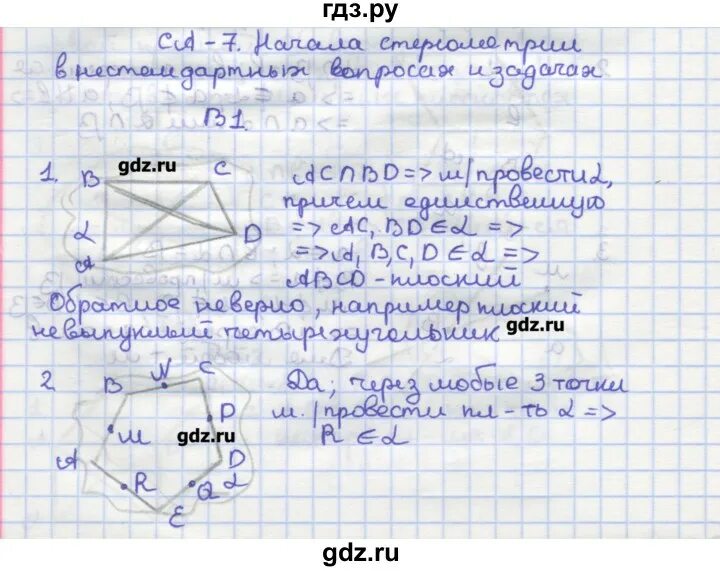 гдз.ру
СА-7. Начала стереометрии
в нестандартных вопросах и задачах
В1.
1.
gdz.ru
B
C
D
A
α
AC∩BD => м/провести α,
причем единственную
=> AC, BD ∈ α =>
=> A, B, C, D ∈ α =>
ABCD - плоский
Обратное неверно, например плоский
невыпуклый четырехугольник
gdz.ru
2.
B
N
C
P
M
gdz.ru
A
R
D
Q
α
E
Да; через любые 3 точки
м./провести пл-ть α =>
R ∈ α
gdz.ru